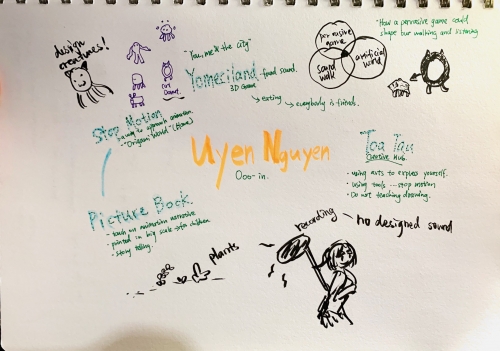 design
creatures!
"You, me & the city"
Yomeciland - food sound.
3D Game
eating
everybody is friends.
pervasive
game
sound
walk
artificial
mind
"How a pervasive game could
shape our walking and listening
Stop Motion
- a way to approach animation.
- "Origami World" (Home)
Uyen Nguyen
Ooo-in.
Toa Tau
Creative Hub.
- using arts to express yourself.
- using tools ... stop motion
- Do not teaching drawing.
Picture Book.
- touch on animation narrative
- painted in big scale → for children
- story telling.
plants
recording
no designed sound